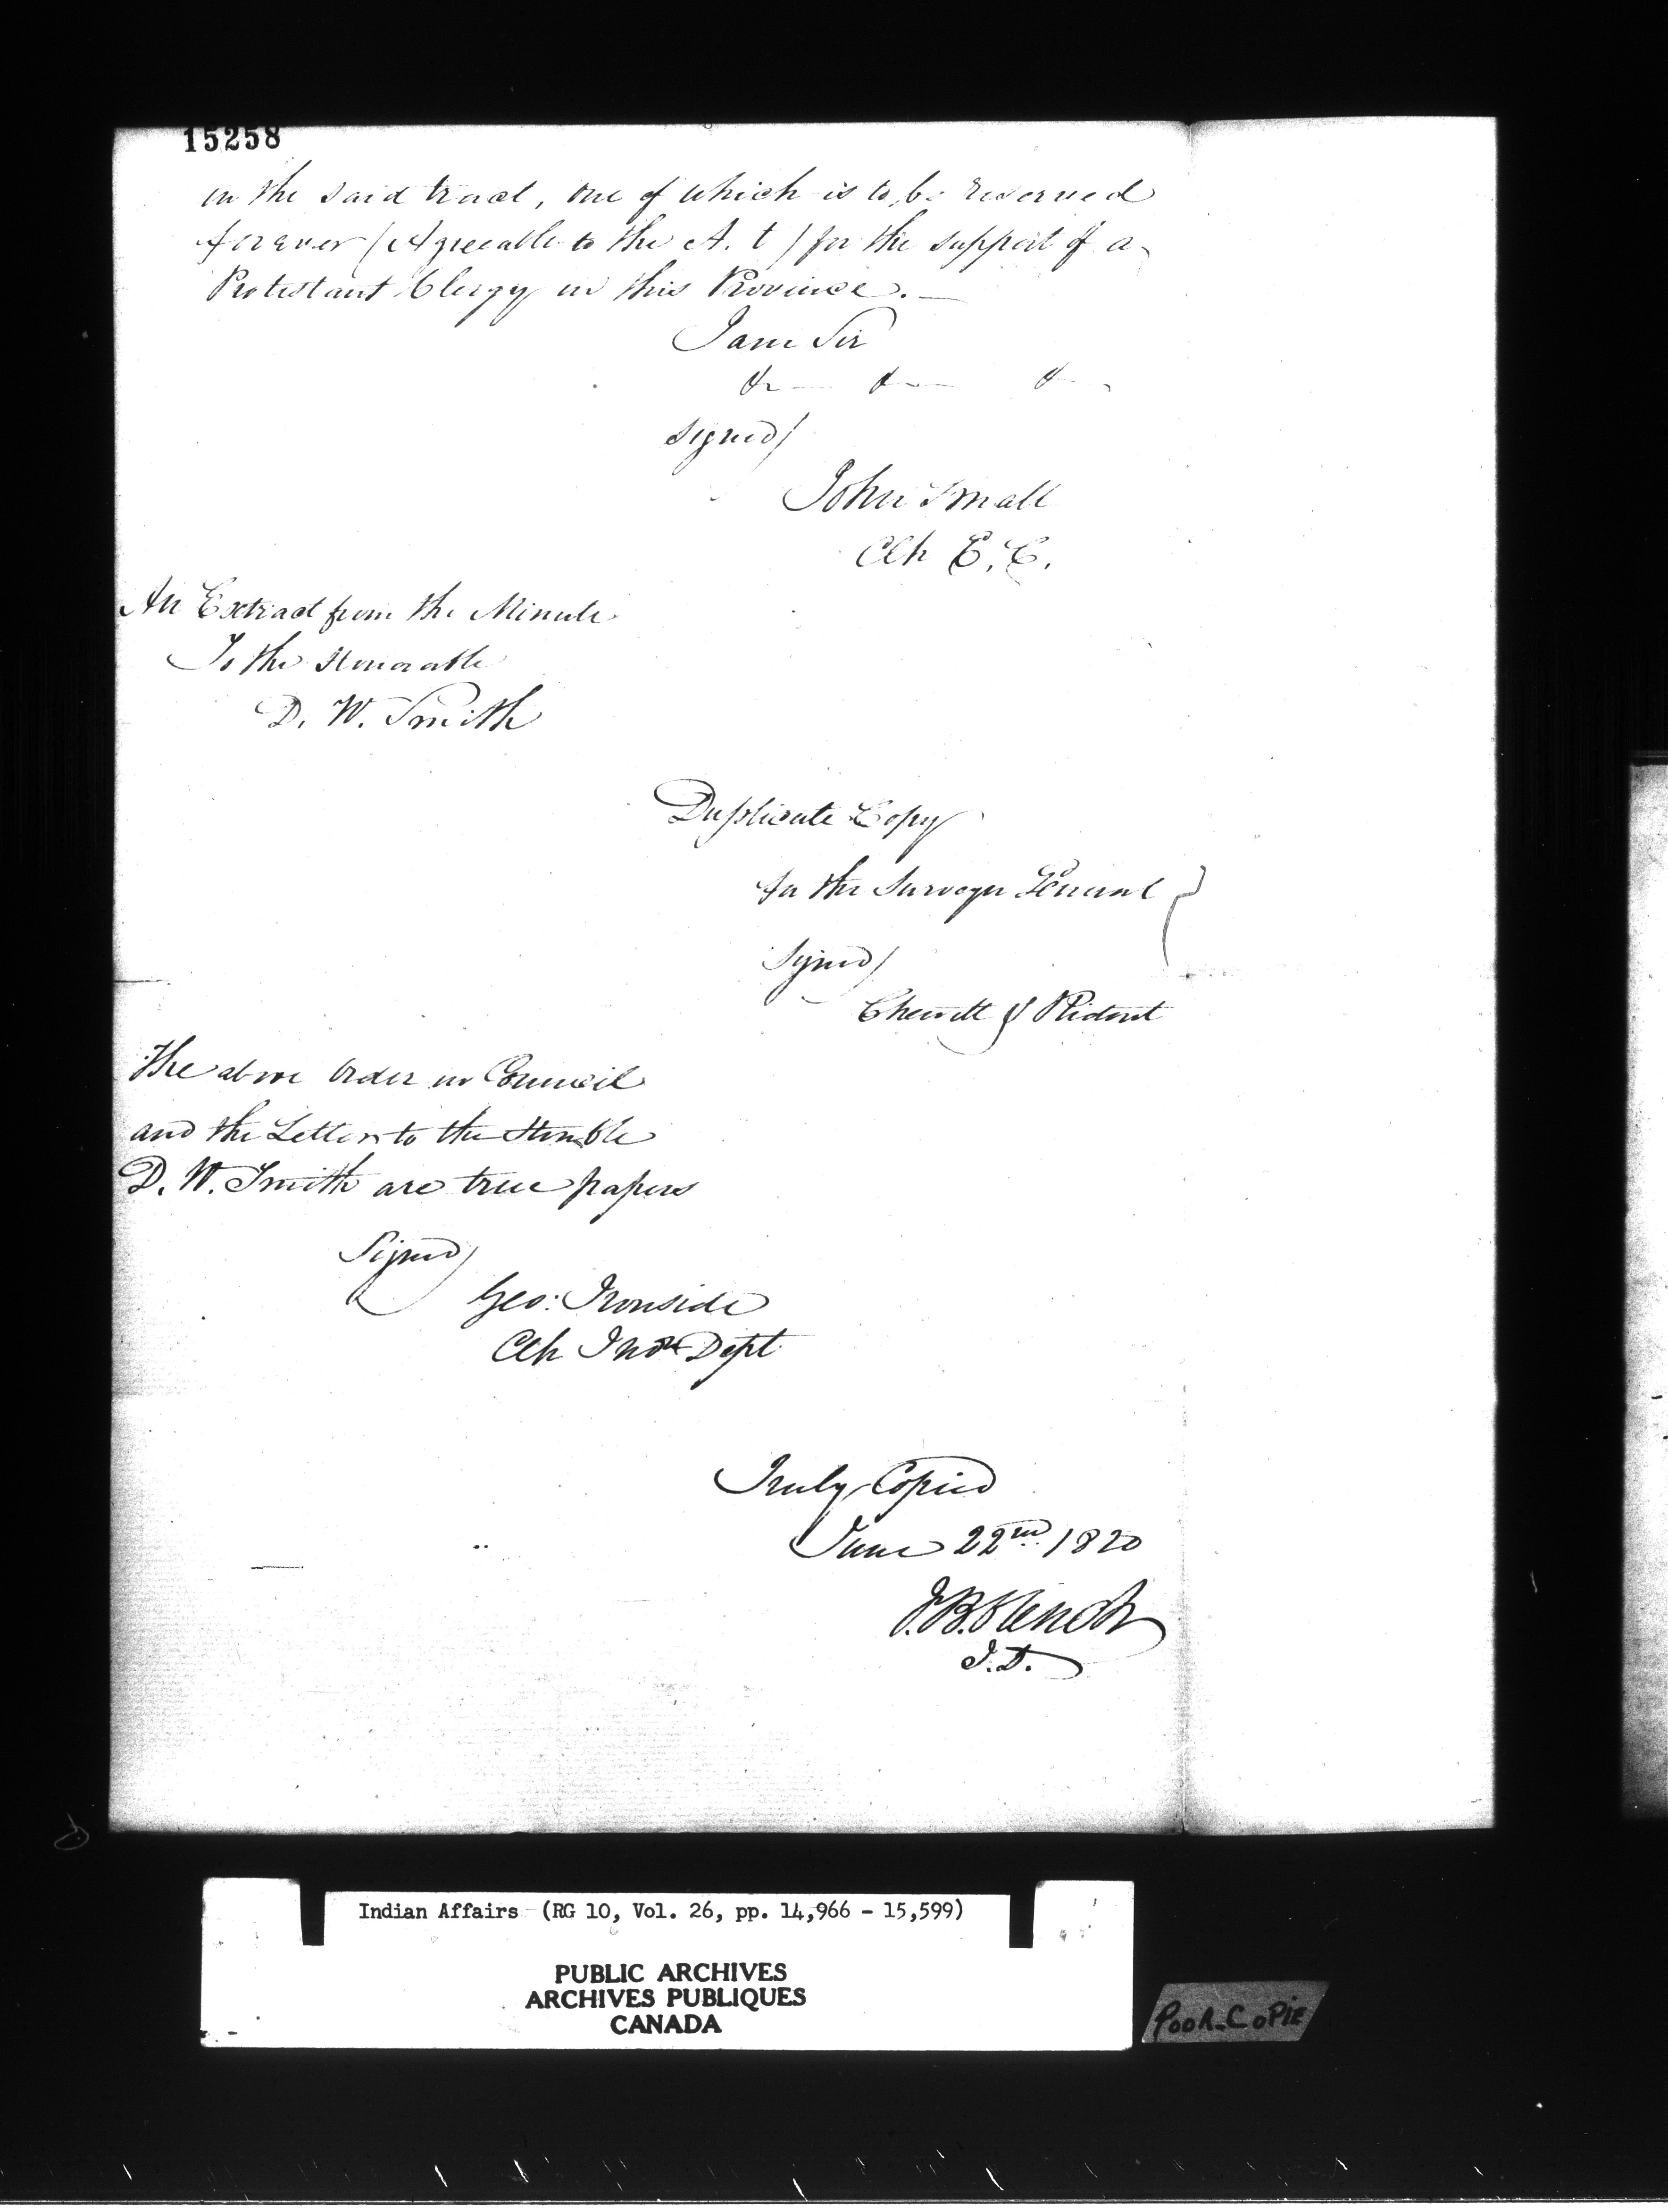 15258
in the said tract, one of which is to be reserved
forever (Agreeable to the A. t) for the support of a
Protestant Clergy in this Province. —
I am Sir
&c — &c — &c —
Signed/
John Small
Clk E. C.
An Extract from the Minute
To the Honorable
D. W. Smith
Duplicate Copy
for the Surveyor General
Signed/
Chewett & Ridout
The above Order in Council
and the Letter to the Honble
D. W. Smith are true papers
Signed/
Geo: Ironside
Clk Ind Dept
Truly Copied
June 22nd 1820
J.B. Clench
I.D.
Indian Affairs (RG 10, Vol. 26, pp. 14,966 - 15,599)
PUBLIC ARCHIVES
ARCHIVES PUBLIQUES
CANADA
POOR-COPIE